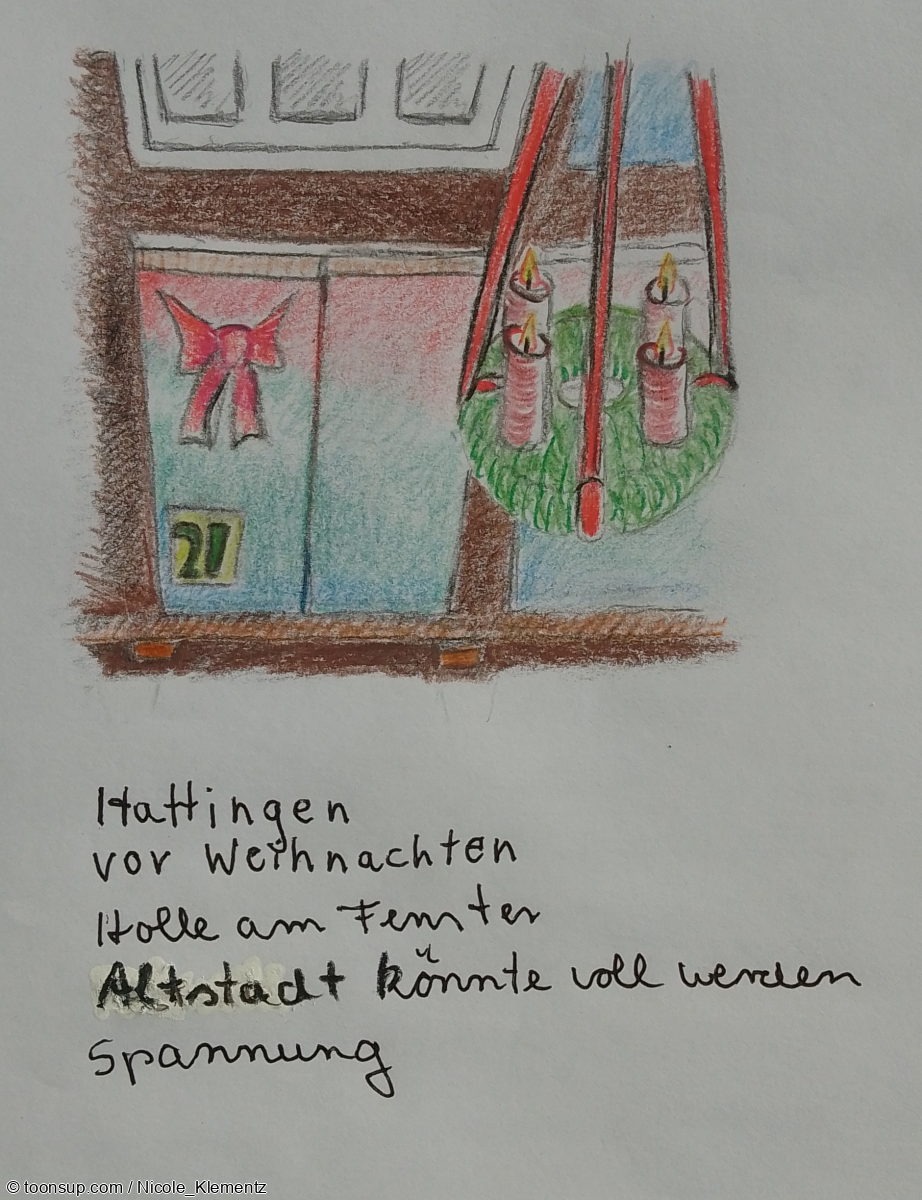 21
Hattingen
vor Weihnachten
Holle am Fenster
Altstadt könnte voll werden
Spannung
© toonsup.com / Nicole_Klementz